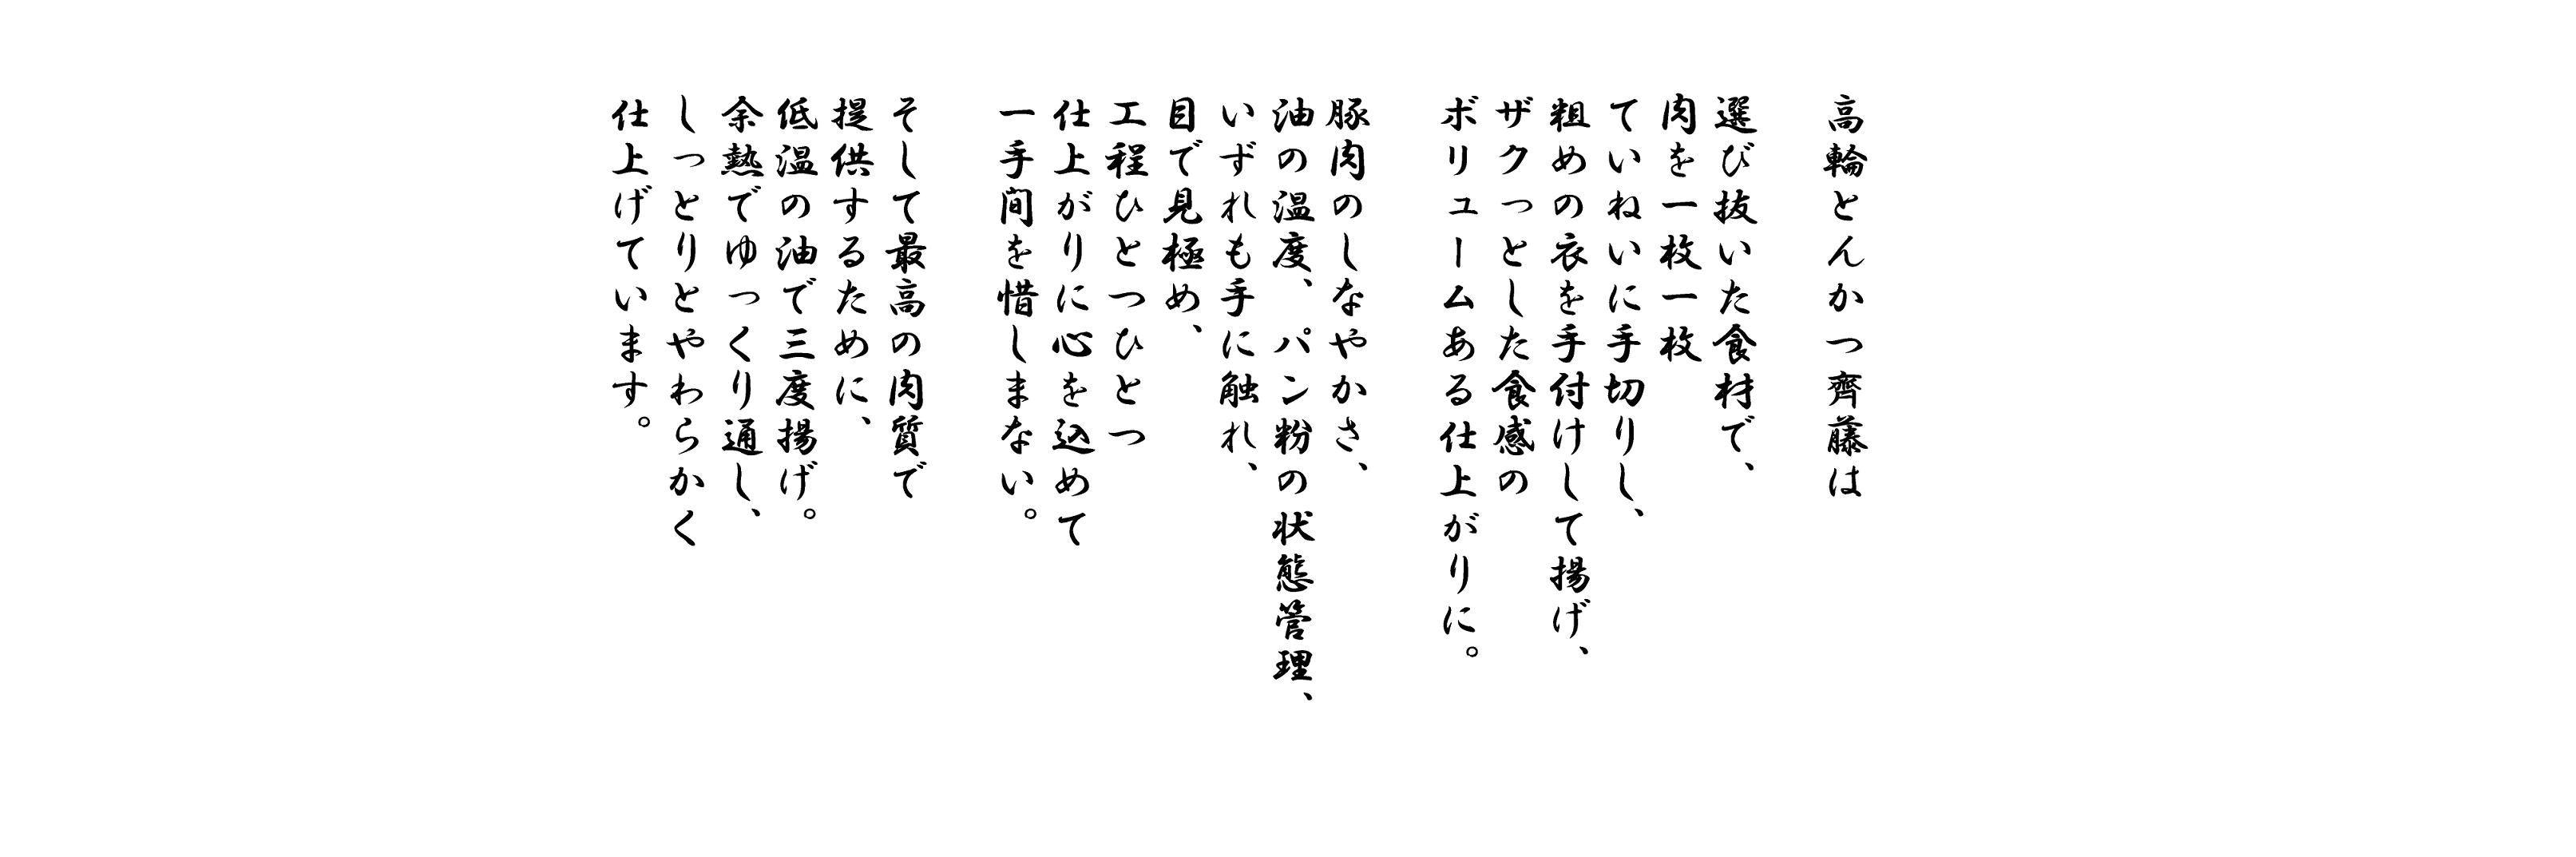 高輪とんかつ齊藤は
選び抜いた食材で、
肉を一枚一枚
ていねいに手切りし、
粗めの衣を手付けして揚げ、
ザクっとした食感の
ボリュームある仕上がりに。
豚肉のしなやかさ、
油の温度、パン粉の状態管理、
いずれも手に触れ、
目で見極め、
工程ひとつひとつ
仕上がりに心を込めて
一手間を惜しまない。
そして最高の肉質で
提供するために、
低温の油で三度揚げ。
余熱でゆっくり通し、
しっとりとやわらかく
仕上げています。